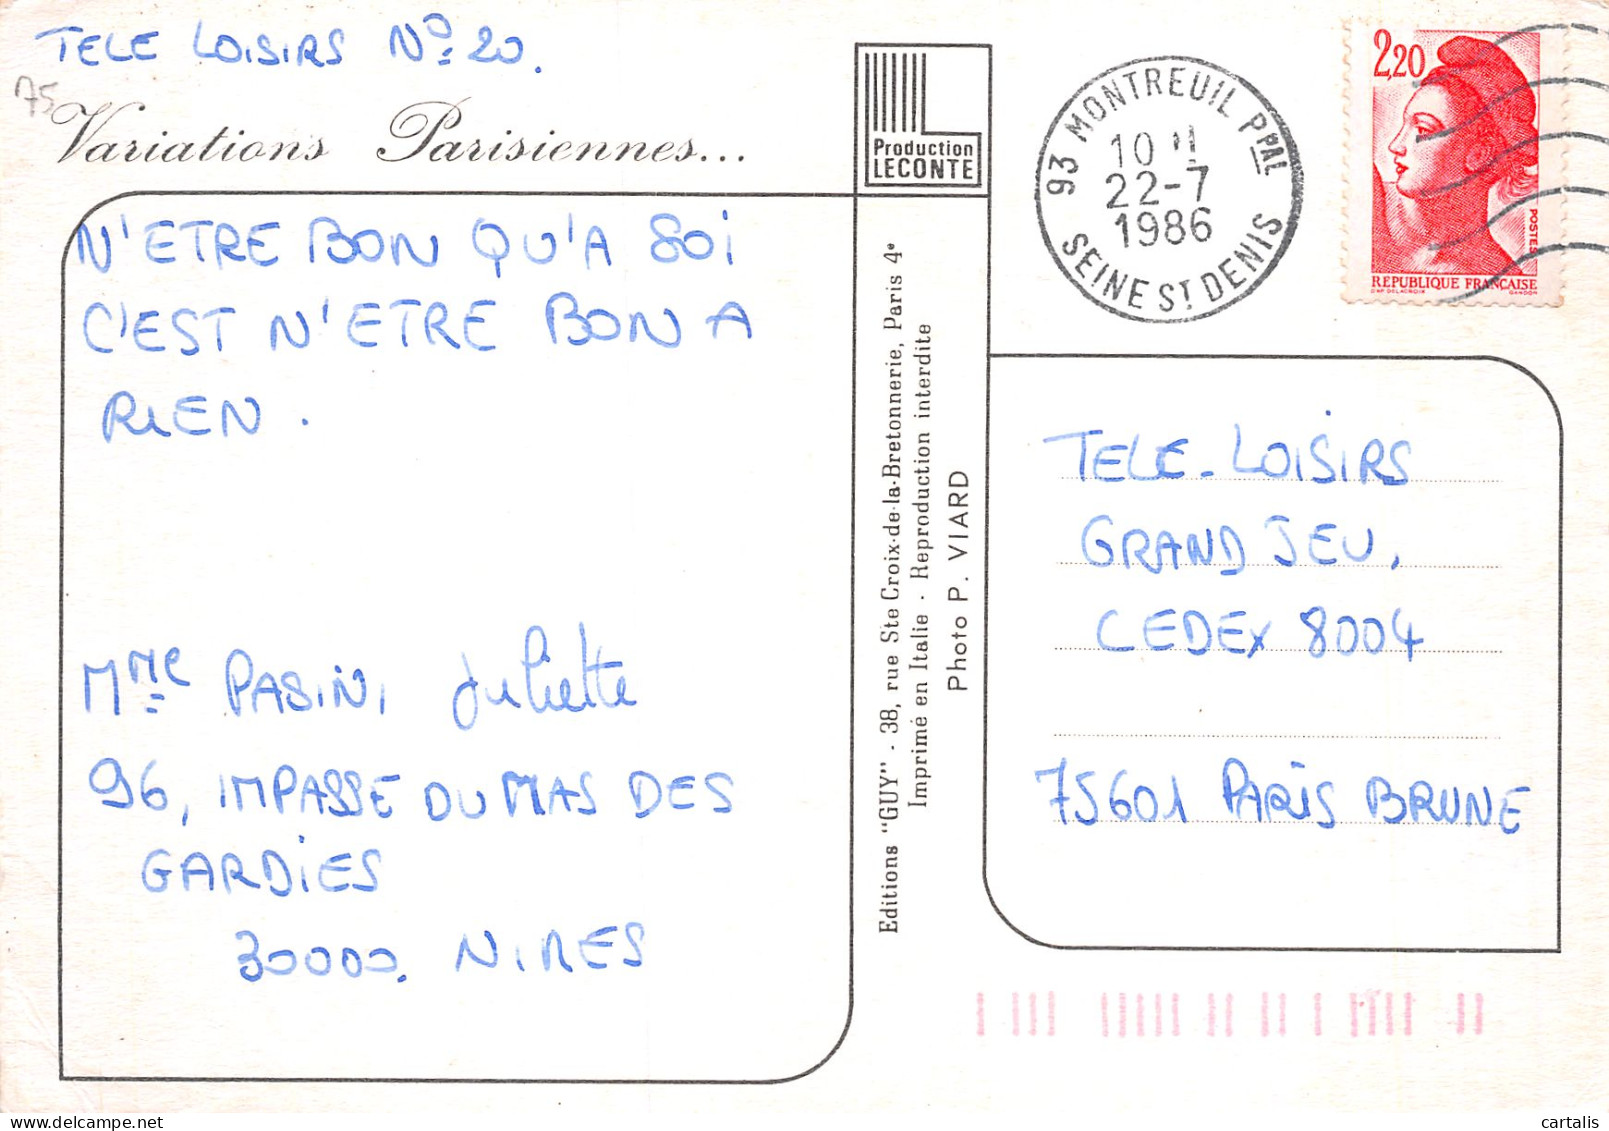 TELE LOISIRS No 20.
75
Variations Parisiennes...
N'ETRE BON QU'A SOI
C'EST N'ETRE BON A
RIEN.
Mme PASINI Juliette
96, IMPASSE DU MAS DES
GARDIES
30000. NIMES
Production
LECONTE
Editions "GUY" - 38, rue Ste Croix-de-la-Bretonnerie, Paris 4e
Imprimé en Italie - Reproduction interdite
Photo P. VIARD
93 MONTREUIL PPAL
10 H
22-7
1986
SEINE ST DENIS
2,20
POSTES
REPUBLIQUE FRANÇAISE
D'AP. DELACROIX GANDON
TELE-LOISIRS
GRAND JEU.
CEDEX 8004
75601 PARIS BRUNE
cartalis